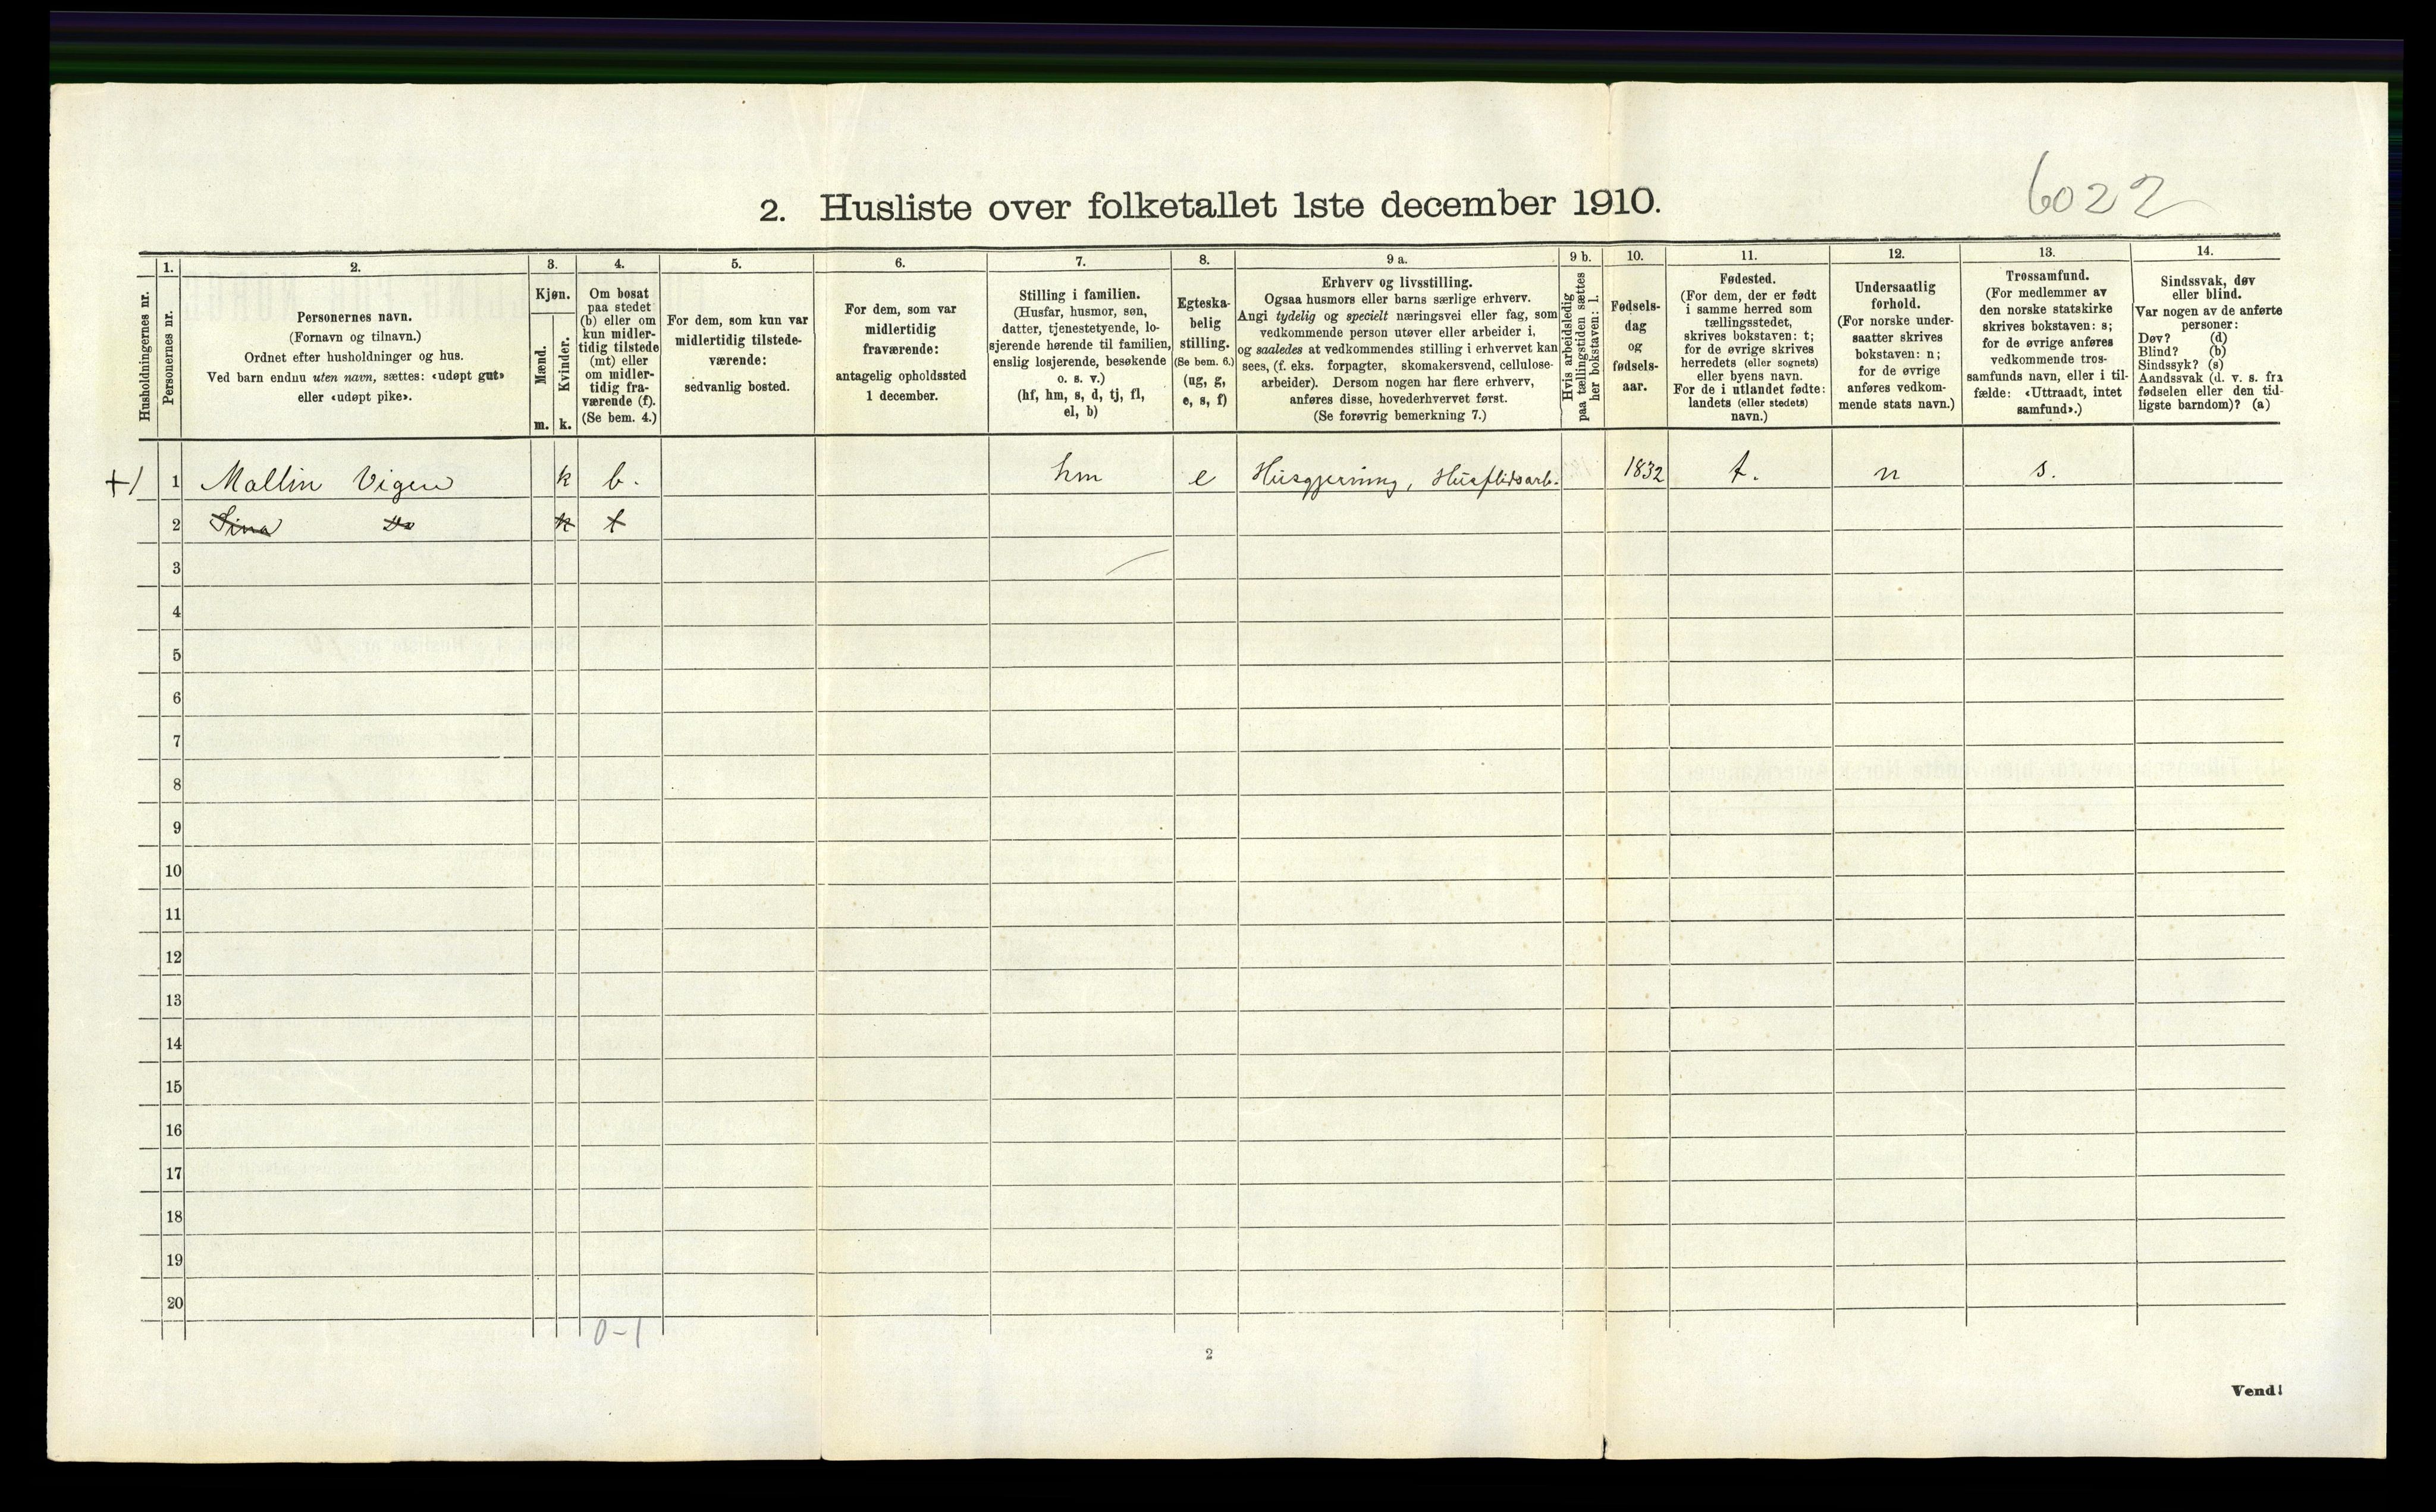 6022
2. Husliste over folketallet 1ste december 1910.
Husholdningernes nr.
1.
Personernes nr.
2.
Personernes navn.
(Fornavn og tilnavn.)
Ordnet efter husholdninger og hus.
Ved barn endnu uten navn, sættes: «udøpt gut»
eller «udøpt pike».
3.
Kjøn.
Mænd.
Kvinder.
m. k.
4.
Om bosat
paa stedet
(b) eller om
kun midler-
tidig tilstede
(mt) eller
om midler-
tidig fra-
værende (f).
(Se bem. 4.)
5.
For dem, som kun var
midlertidig tilstede-
værende:
sedvanlig bosted.
6.
For dem, som var
midlertidig
fraværende:
antagelig opholdssted
1 december.
7.
Stilling i familien.
(Husfar, husmor, søn,
datter, tjenestetyende, lo-
sjerende hørende til familien,
enslig losjerende, besøkende
o. s. v.)
(hf, hm, s, d, tj, fl,
el, b)
8.
Egteska-
belig
stilling.
(Se bem. 6.)
(ug, g,
e, s, f)
9 a.
Erhverv og livsstilling.
Ogsaa husmors eller barns særlige erhverv.
Angi tydelig og specielt næringsvei eller fag, som
vedkommende person utøver eller arbeider i,
og saaledes at vedkommendes stilling i erhvervet kan
sees, (f. eks. forpagter, skomakersvend, cellulose-
arbeider). Dersom nogen har flere erhverv,
anføres disse, hovederhvervet først.
(Se forøvrig bemerkning 7.)
9 b.
Hvis arbeidsledig
paa tællingstiden sættes
her bokstaven: l.
10.
Fødsels-
dag
og
fødsels-
aar.
11.
Fødested.
(For dem, der er født
i samme herred som
tællingsstedet,
skrives bokstaven: t;
for de øvrige skrives
herredets (eller sognets)
eller byens navn.
For de i utlandet fødte:
landets (eller stedets)
navn.)
12.
Undersaatlig
forhold.
(For norske under-
saatter skrives
bokstaven: n;
for de øvrige
anføres vedkom-
mende stats navn.)
13.
Trossamfund.
(For medlemmer av
den norske statskirke
skrives bokstaven: s;
for de øvrige anføres
vedkommende tros-
samfunds navn, eller i til-
fælde: «Uttraadt, intet
samfund».)
14.
Sindssvak, døv
eller blind.
Var nogen av de anførte
personer:
Døv? (d)
Blind? (b)
Sindssyk? (s)
Aandssvak (d. v. s. fra
fødselen eller den tid-
ligste barndom)? (a)
+1 1 Mallin Vigen k b. hm e Husgjerning, Husflidsarb. 1832 t. n s.
2 Sina Do k t
3
4
5
6
7
8
9
10
11
12
13
14
15
16
17
18
19
20
0-1
2
Vend!